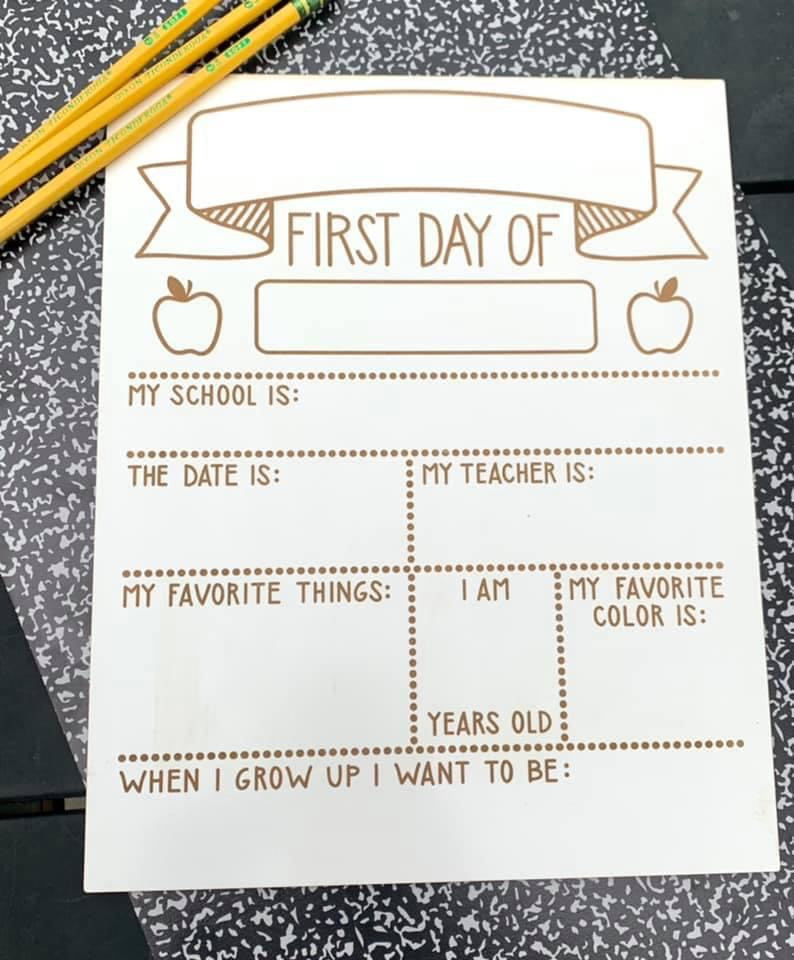 DIXON TICONDEROGA SOFT
DIXON TICONDEROGA
DIXON TICONDEROGA SOFT
FIRST DAY OF
MY SCHOOL IS:
THE DATE IS:
MY TEACHER IS:
MY FAVORITE THINGS:
I AM
YEARS OLD
MY FAVORITE
COLOR IS:
WHEN I GROW UP I WANT TO BE: